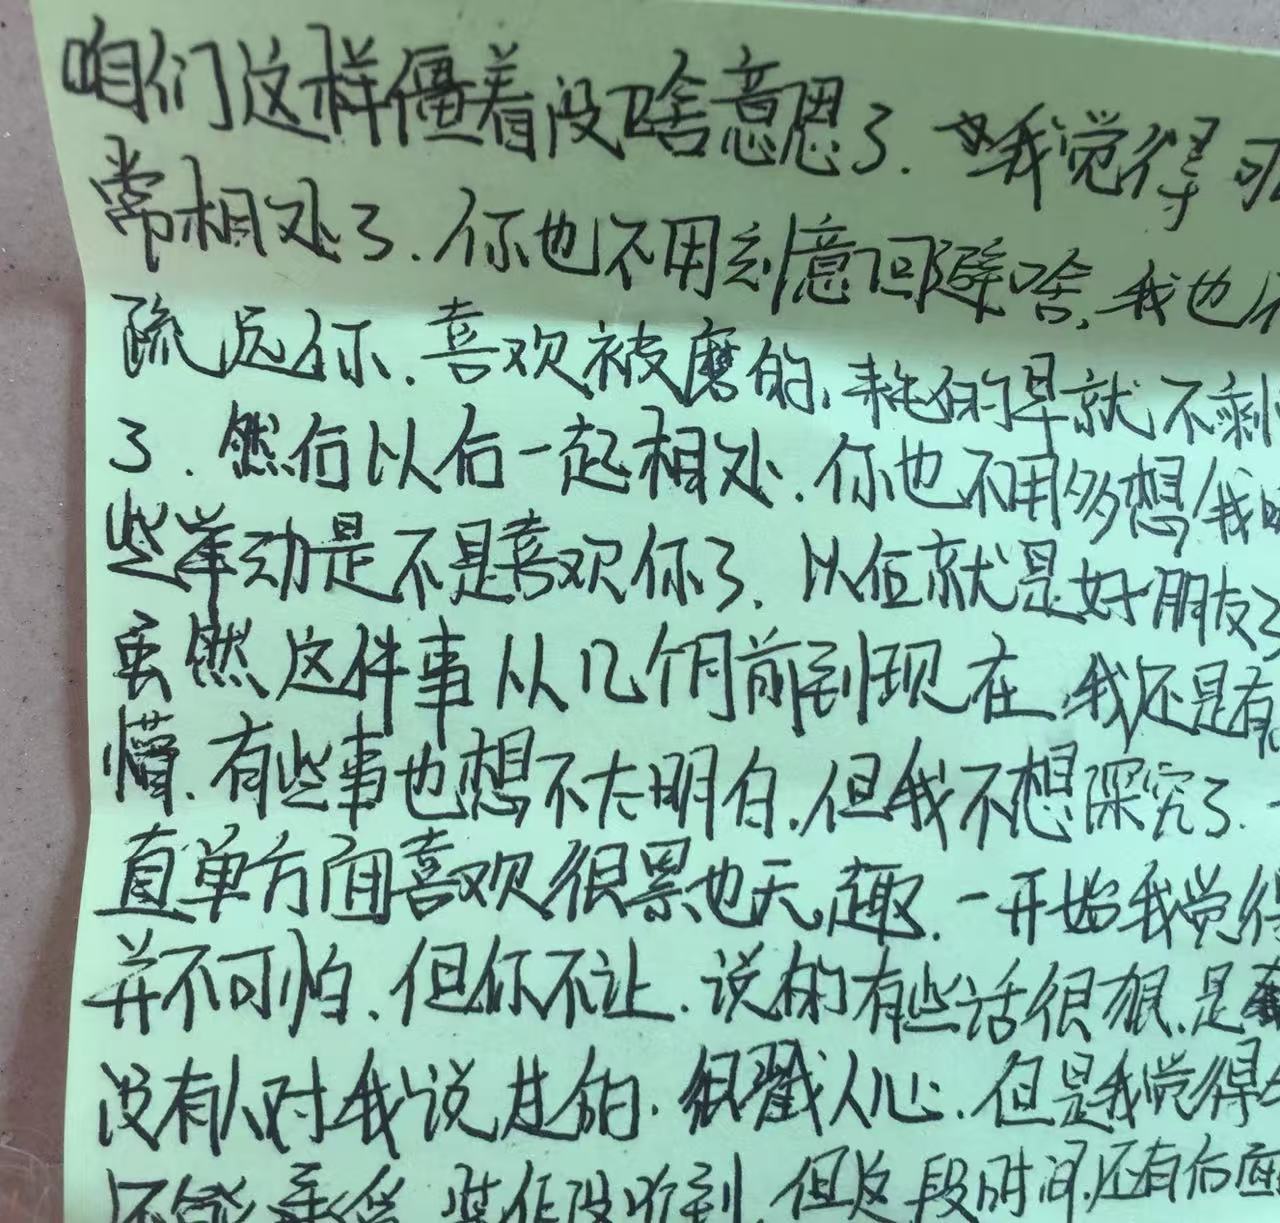 咱们这样僵着没啥意思了.我觉得可
常相处了.你也不用刻意回避啥,我也
疏远你.喜欢被磨的,耗的早就不剩
了.然后以后一起相处.你也不用多想我
些举动是不是喜欢你了.以后就是好朋友了
虽然这件事从几个月前到现在,我还是有
懵.有些事也想不太明白.但我不想深究了.
直单方面喜欢很累也无趣.一开始我觉得
并不可怕.但你不让.说的有些话很狠.是
没有人对我说过的.很戳人心.但是我觉得
还能承受.装作没听到.但这段时间,还有后面